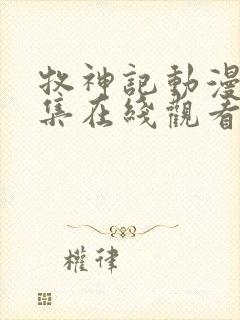 牧神記動漫
集在綫觀看
權律